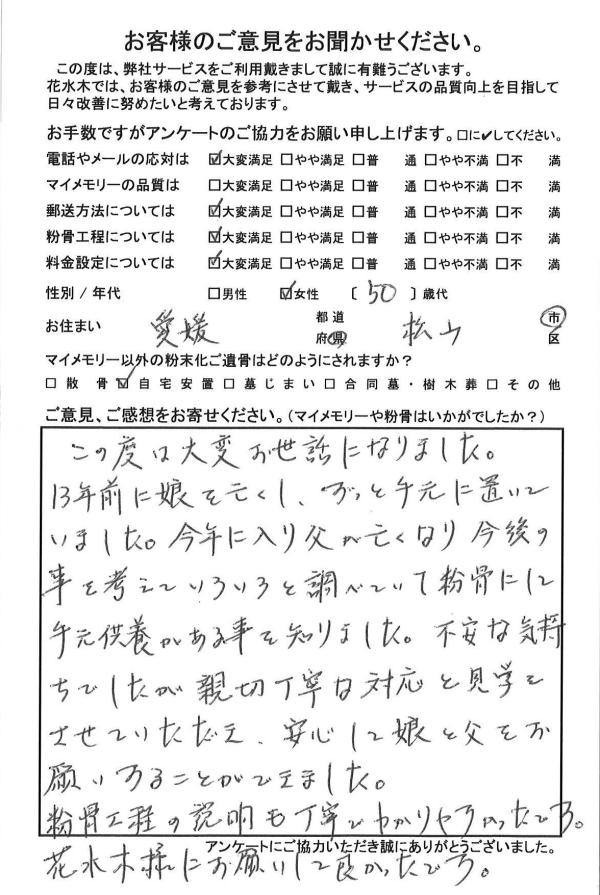 お客様のご意見をお聞かせください。
この度は、弊社サービスをご利用戴きまして誠に有難うございます。
花水木では、お客様のご意見を参考にさせて戴き、サービスの品質向上を目指して
日々改善に努めたいと考えております。
お手数ですがアンケートのご協力をお願い申し上げます。□に✔してください。
電話やメールの応対は ☑大変満足 □やや満足 □普 通 □やや不満 □不 満
マイメモリーの品質は □大変満足 □やや満足 □普 通 □やや不満 □不 満
郵送方法については ☑大変満足 □やや満足 □普 通 □やや不満 □不 満
粉骨工程については ☑大変満足 □やや満足 □普 通 □やや不満 □不 満
料金設定については ☑大変満足 □やや満足 □普 通 □やや不満 □不 満
性別 / 年代 □男性 ☑女性 〔 50 〕歳代
お住まい 愛媛 都道府県 松山 市区
マイメモリー以外の粉末化ご遺骨はどのようにされますか？
□散 骨 ☑自宅安置 □墓じまい □合同墓・樹木葬 □その他
ご意見、ご感想をお寄せください。（マイメモリーや粉骨はいかがでしたか？）
この度は大変お世話になりました。
13年前に娘を亡くし、ずっと手元に置いて
いました。今年に入り父が亡くなり今後の
事を考えていろいろと調べていて粉骨にして
手元供養がある事を知りました。不安な気持
ちでしたが親切丁寧な対応と見学を
させていただき、安心して娘と父をお
願いすることができました。
粉骨工程の説明も丁寧でわかりやすかったです。
アンケートにご協力いただき誠にありがとうございました。
花水木様にお願いして良かったです。